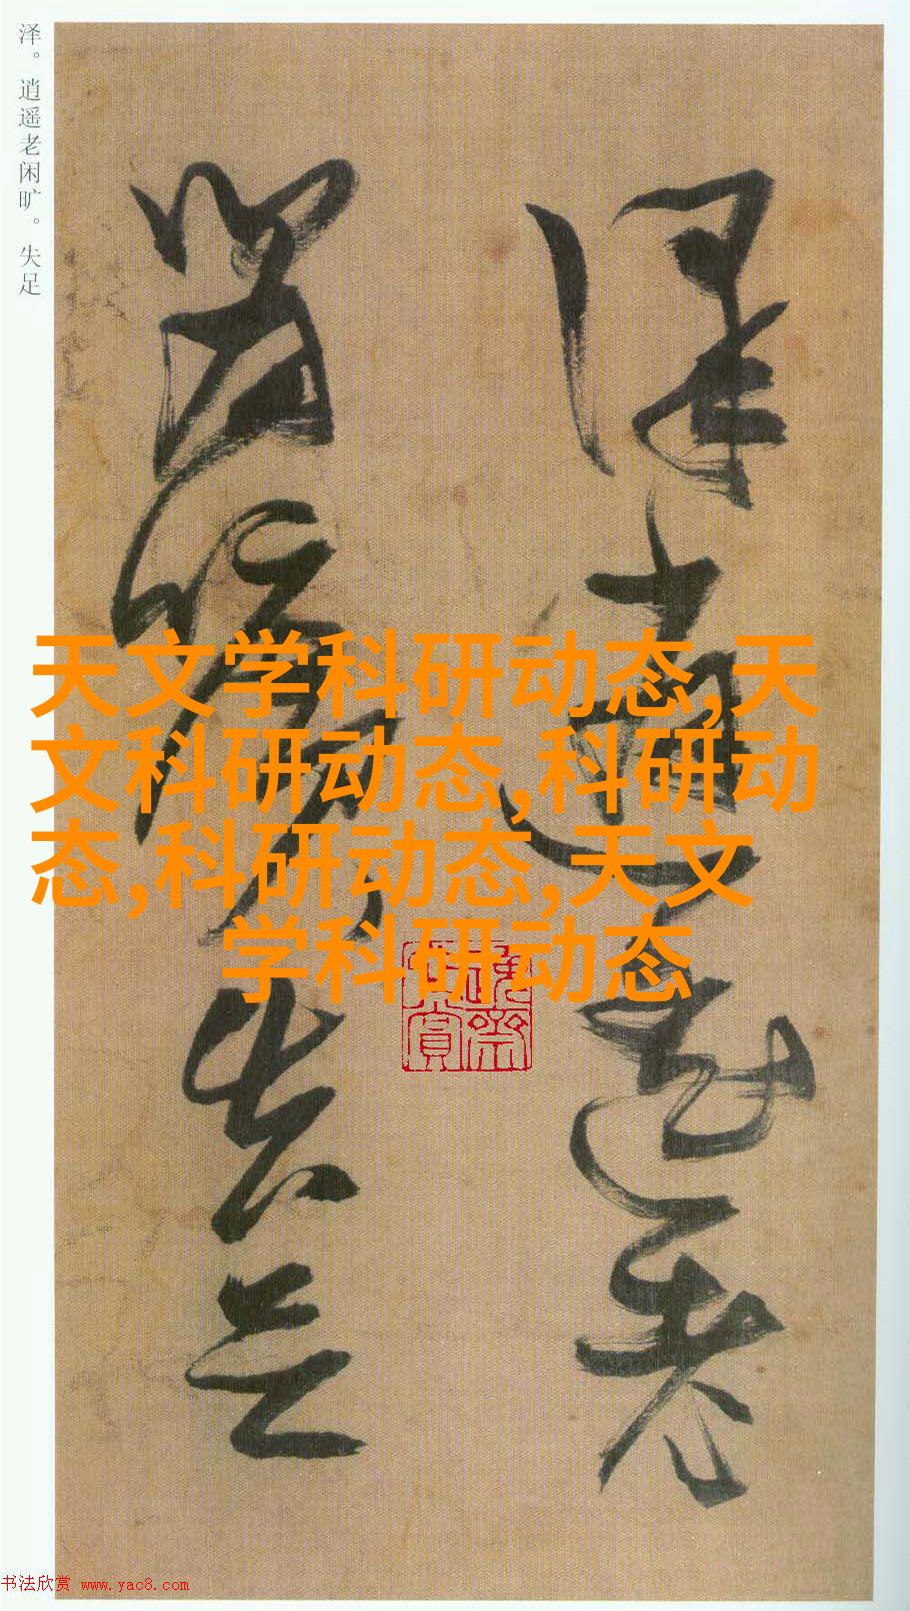 泽。逍遥老闲旷。失足
泽逍遥老
闲旷失足
天文学科研动态,天
文科研动态,科研动
态,科研动态,天文
学科研动态
书法欣赏 www.yac8.com